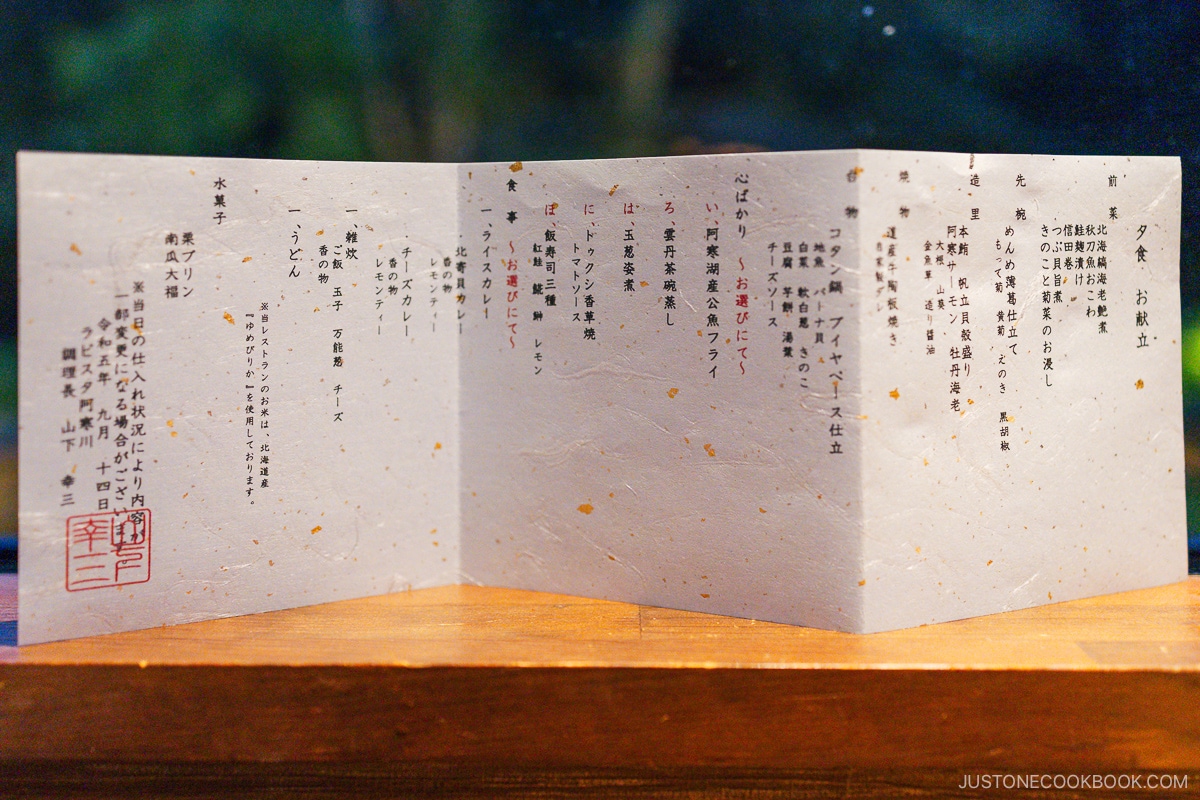 夕食 お献立
前菜
北海縞海老艶煮
秋刀魚おこわ
鮭麹漬け
信田巻
つぶ貝旨煮
きのこと菊菜のお浸し
先椀
めんめ薄葛仕立て
もって菊 黄菊 えのき 黒胡椒
造里
本鮪 帆立貝殻盛り
阿寒サーモン 牡丹海老
大根 山葵
金魚草 造り醤油
焼物
道産牛陶板焼き
台物
コタン鍋 ブイヤベース仕立
地魚 バーナ貝
白菜 軟白葱 きのこ
豆腐 芋餅 湯葉
チーズソース
心ばかり ~お選びにて~
い、阿寒湖産公魚フライ
ろ、雲丹茶碗蒸し
は、玉葱姿煮
に、ドゥクシ香草焼
トマトソース
ほ、飯寿司三種
紅鮭 䱩 鰰 レモン
食事 ~お選びにて~
一、ライスカレー
北寄貝カレー
香の物
レモンティー
チーズカレー
香の物
レモンティー
一、雑炊
ご飯 玉子 万能葱 チーズ
香の物
一、うどん
※当レストランのお米は、北海道産
『ゆめぴりか』を使用しております。
水菓子
栗プリン
南瓜大福
※当日の仕入れ状況により内容が
一部変更になる場合がございます。
令和五年 九月 十四日
ラビスタ阿寒川
調理長 山下 幸三
山下
幸三
JUSTONECOOKBOOK.COM